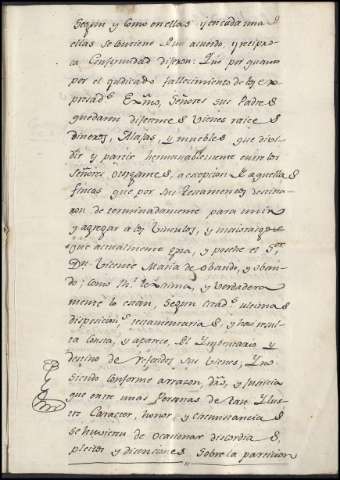 Segun y como en ellas, y en cada una de
ellas se contiene. Que acuerdo, y recipro-
ca Conformidad dixeron: Que por quanto
por el fallecimiento de los ex-
presad.s Exmos. Señores sus Padres
quedaron diferentes vienes raices
dineros, Alajas, y muebles que divi-
dir y partir hermanablemente entre los
Señores otorgantes, a excepcion de aquellas
fincas que por sus testamentos destina-
ron determinadamente para unir
y agregar a los Vinculos, y maiorazgos
que actualmente goza, y posehe el Sor.
Dn. Vicente Maria de Obando, y oban-
do; como verdadera-
mente lo estan, segun citad.s ultimas
disposicion.s testamentarias y
consta, y aparece. El Imbentario y
destino de referidos sus vienes, Y no
siendo conforme arrazon, dro, y Justicia
que entre unas Personas de tan Ilus-
tre Caracter, honor, y circunstancias
se huviesen de ocasionar discordias
pleitos y disensiones sobre la particion